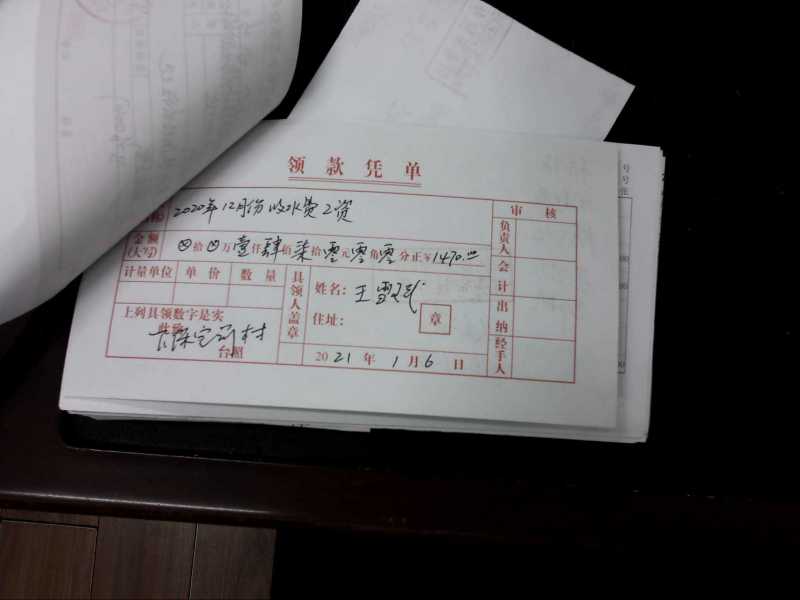 领款凭单
2020年12月份收水费工资
审核
金额(大写) ⊗拾⊗万壹仟肆佰柒拾零元零角零分正¥1470.00
负责人
计量单位 单价 数量
具领人盖章
姓名：王雪
会计
住址：
章
出纳
上列具领数字是实
此致
村
台照
2021年1月6日
经手人